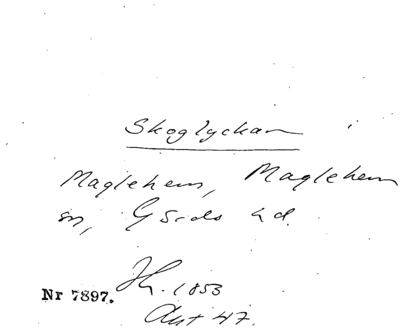 Skoglyckan
Maglehem, Maglehem
sn, Gärds hd.
Nr 7897.
1853
Akt 47.